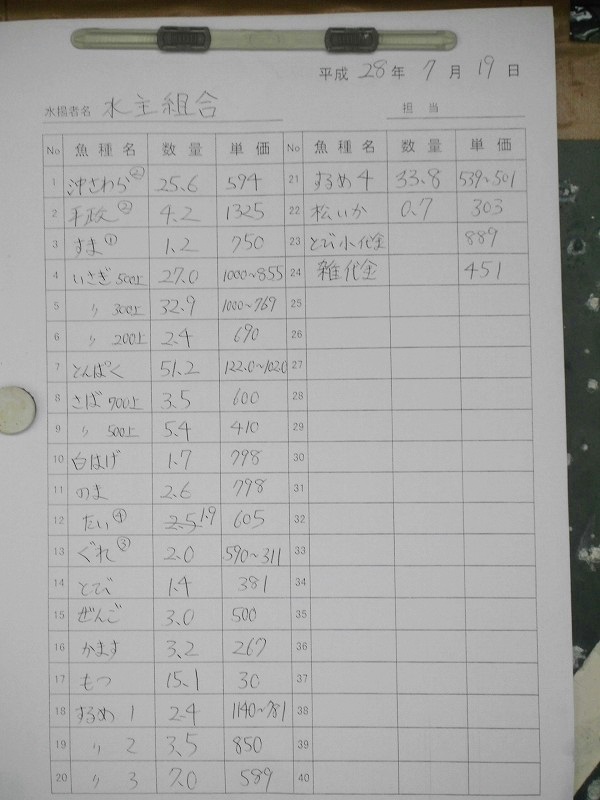 平成 28 年 7 月 19 日
水揚者名 水主組合 担当
No 魚種名 数量 単価 No 魚種名 数量 単価
1 沖さわら② 25.6 594 21 するめ4 33.8 539~501
2 平政② 4.2 1325 22 松いか 0.7 303
3 すま① 1.2 750 23 とび小代金 889
4 いさぎ500上 27.0 1000~855 24 雑代金 451
5 〃 300上 32.9 1000~769 25
6 〃 200上 2.4 690 26
7 とんぱく 51.2 1220~1020 27
8 さば700上 3.5 600 28
9 〃 500上 5.4 410 29
10 白はげ 1.7 798 30
11 のま 2.6 798 31
12 たい④ 2.5 1.9 605 32
13 ぐれ③ 2.0 590~311 33
14 とび 1.4 381 34
15 ぜんご 3.0 500 35
16 かます 3.2 267 36
17 もつ 15.1 30 37
18 するめ 1 2.4 1140~781 38
19 〃 2 3.5 850 39
20 〃 3 7.0 589 40